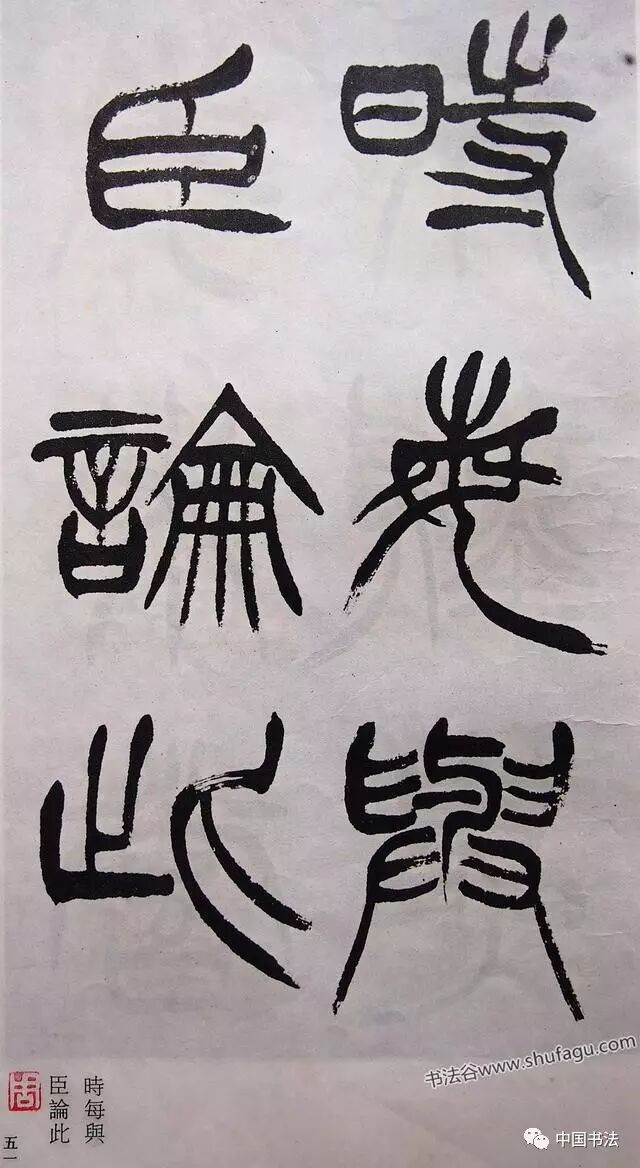 時每與
臣論此
時每與
臣論此
五一
周
书法谷www.shufagu.com
中国书法